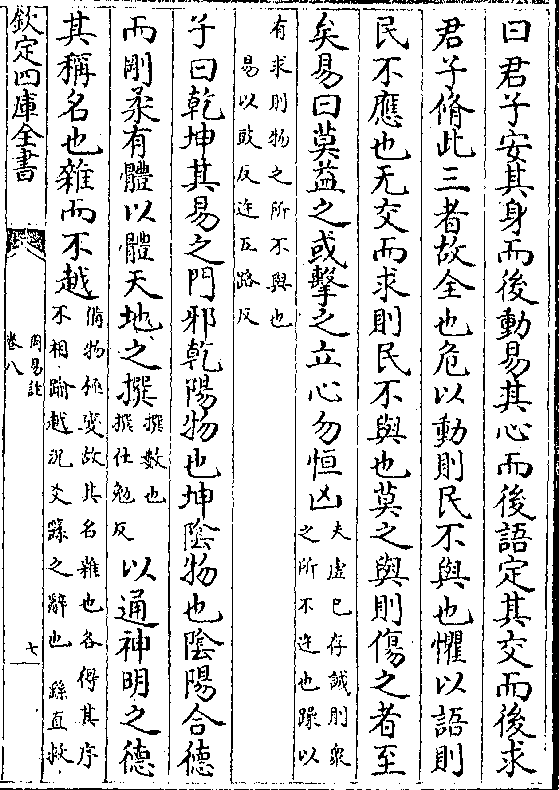 曰君子安其身而後動易其心而後語定其交而後求
君子脩此三者故全也危以動則民不與也懼以語則
民不應也无交而求則民不與也莫之與則傷之者至
矣易曰莫益之或擊之立心勿恒凶夫虛己存誠則衆之所不迕也躁以
有求則物之所不與也易以豉反迕五路反
子曰乾坤其易之門邪乾陽物也坤陰物也陰陽合德
而剛柔有體以體天地之撰撰數也撰仕勉反以通神明之德
其稱名也雜而不越備物極變故其名雜也各得其序不相踰越況爻繇之辭也 繇直救
欽定四庫全書
周易註
卷八
七